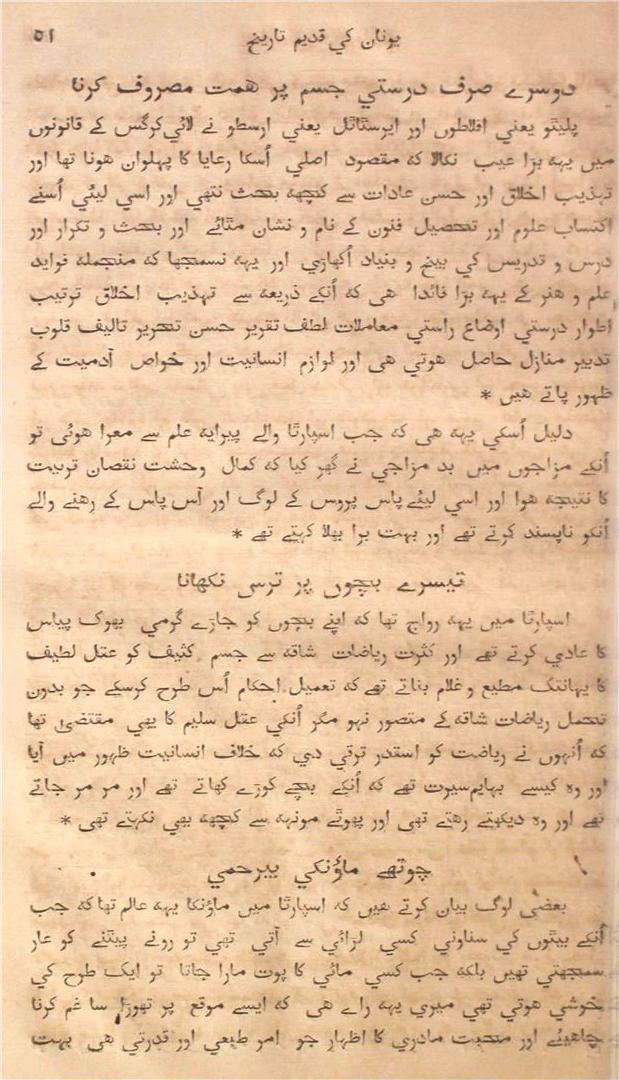 یونان کي قدیم تاریخ ۵۱
دوسرے صرف درستي جسم پر ھمت مصروف کرنا
پلیٹو یعني افلاطوں اور ایرسٹاٹل یعني ارسطو نے لائي کرگس کے قانونوں
میں یہہ بڑا عیب نکالا کہ مقصود اصلي اُسکا رعایا کا پہلوان ھونا تھا اور
تہذیب اخلاق اور حسن عادات سے کچھہ بحث نتھي اور اسي لیئي اُسنے
اکتساب علوم اور تحصیل فنون کے نام و نشان مٹائے اور بحث و تکرار اور
درس و تدریس کي بیخ و بنیاد اُکھاڑي اور یہہ نسمجھا کہ منجملہ فواید
علم و ھنر کے یہہ بڑا فائدا ھی کہ اُنکے ذریعہ سے تہذیب اخلاق ترتیب
اطوار درستي اوضاع راستي معاملات لطف تقریر حسن تحریر تالیف قلوب
تدبیر منازل حاصل ھوتي ھی اور لوازم انسانیت اور خواص آدمیت کے
ظہور پاتے ھیں *
دلیل اُسکي یہہ ھی کہ جب اسپارٹا والے پیرایہ علم سے معرا ھوئی تو
اُنکے مزاجوں میں بد مزاجي نے گھر کیا کہ کمال وحشت نقصان تربیت
کا نتیجہ ھوا اور اسي لیئے پاس پروس کے لوگ اور آس پاس کے رھنے والے
اُنکو ناپسند کرتے تھے اور بہت برا بھلا کہتے تھے *
تیسرے بچوں پر ترس نکھانا
اسپارٹا میں یہہ رواج تھا کہ اپنے بچوں کو جاڑے گرمي بھوک پیاس
کا عادي کرتے تھے اور کثرت ریاضات شاقہ سے جسم کثیف کو عقل لطیف
کا یہانتک مطیع و غلام بناتے تھے کہ تعمیل احکام اُس طرح کرسکے جو بدون
تحمل ریاضات شاقہ کے متصور نہو مگر اُنکي عقل سلیم کا یھي مقتضیٰ تھا
کہ اُنہوں نے ریاضت کو اسقدر ترقي دي کہ خلاف انسانیت ظہور میں آیا
اور وہ کیسے بہایم سیرت تھے کہ اُنکے بچے کوڑے کھاتے تھے اور مر مر جاتے
تھے اور وہ دیکھتے رھتے تھی اور پھوٹے مونہہ سے کچھہ بھي نکہتے تھی *
چوتھے ماؤنکي بیرحمي
بعضی لوگ بیان کرتے ھیں کہ اسپارٹا میں ماؤنکا یہہ عالم تھا کہ جب
اُنکے بیٹوں کي سناوني کسي لڑائي سے آتي تھي تو رونے پیٹنے کو عار
سمجھتي تھیں بلکہ جب کسي مائي کا پوت مارا جاتا تو ایک طرح کي
خوشي ھوتي تھي میري یہہ راے ھی کہ ایسے موقع پر تھوڑا سا غم کرنا
چاھیئے اور محبت مادري کا اظہار جو امر طبعي اور قدرتي ھی بہت